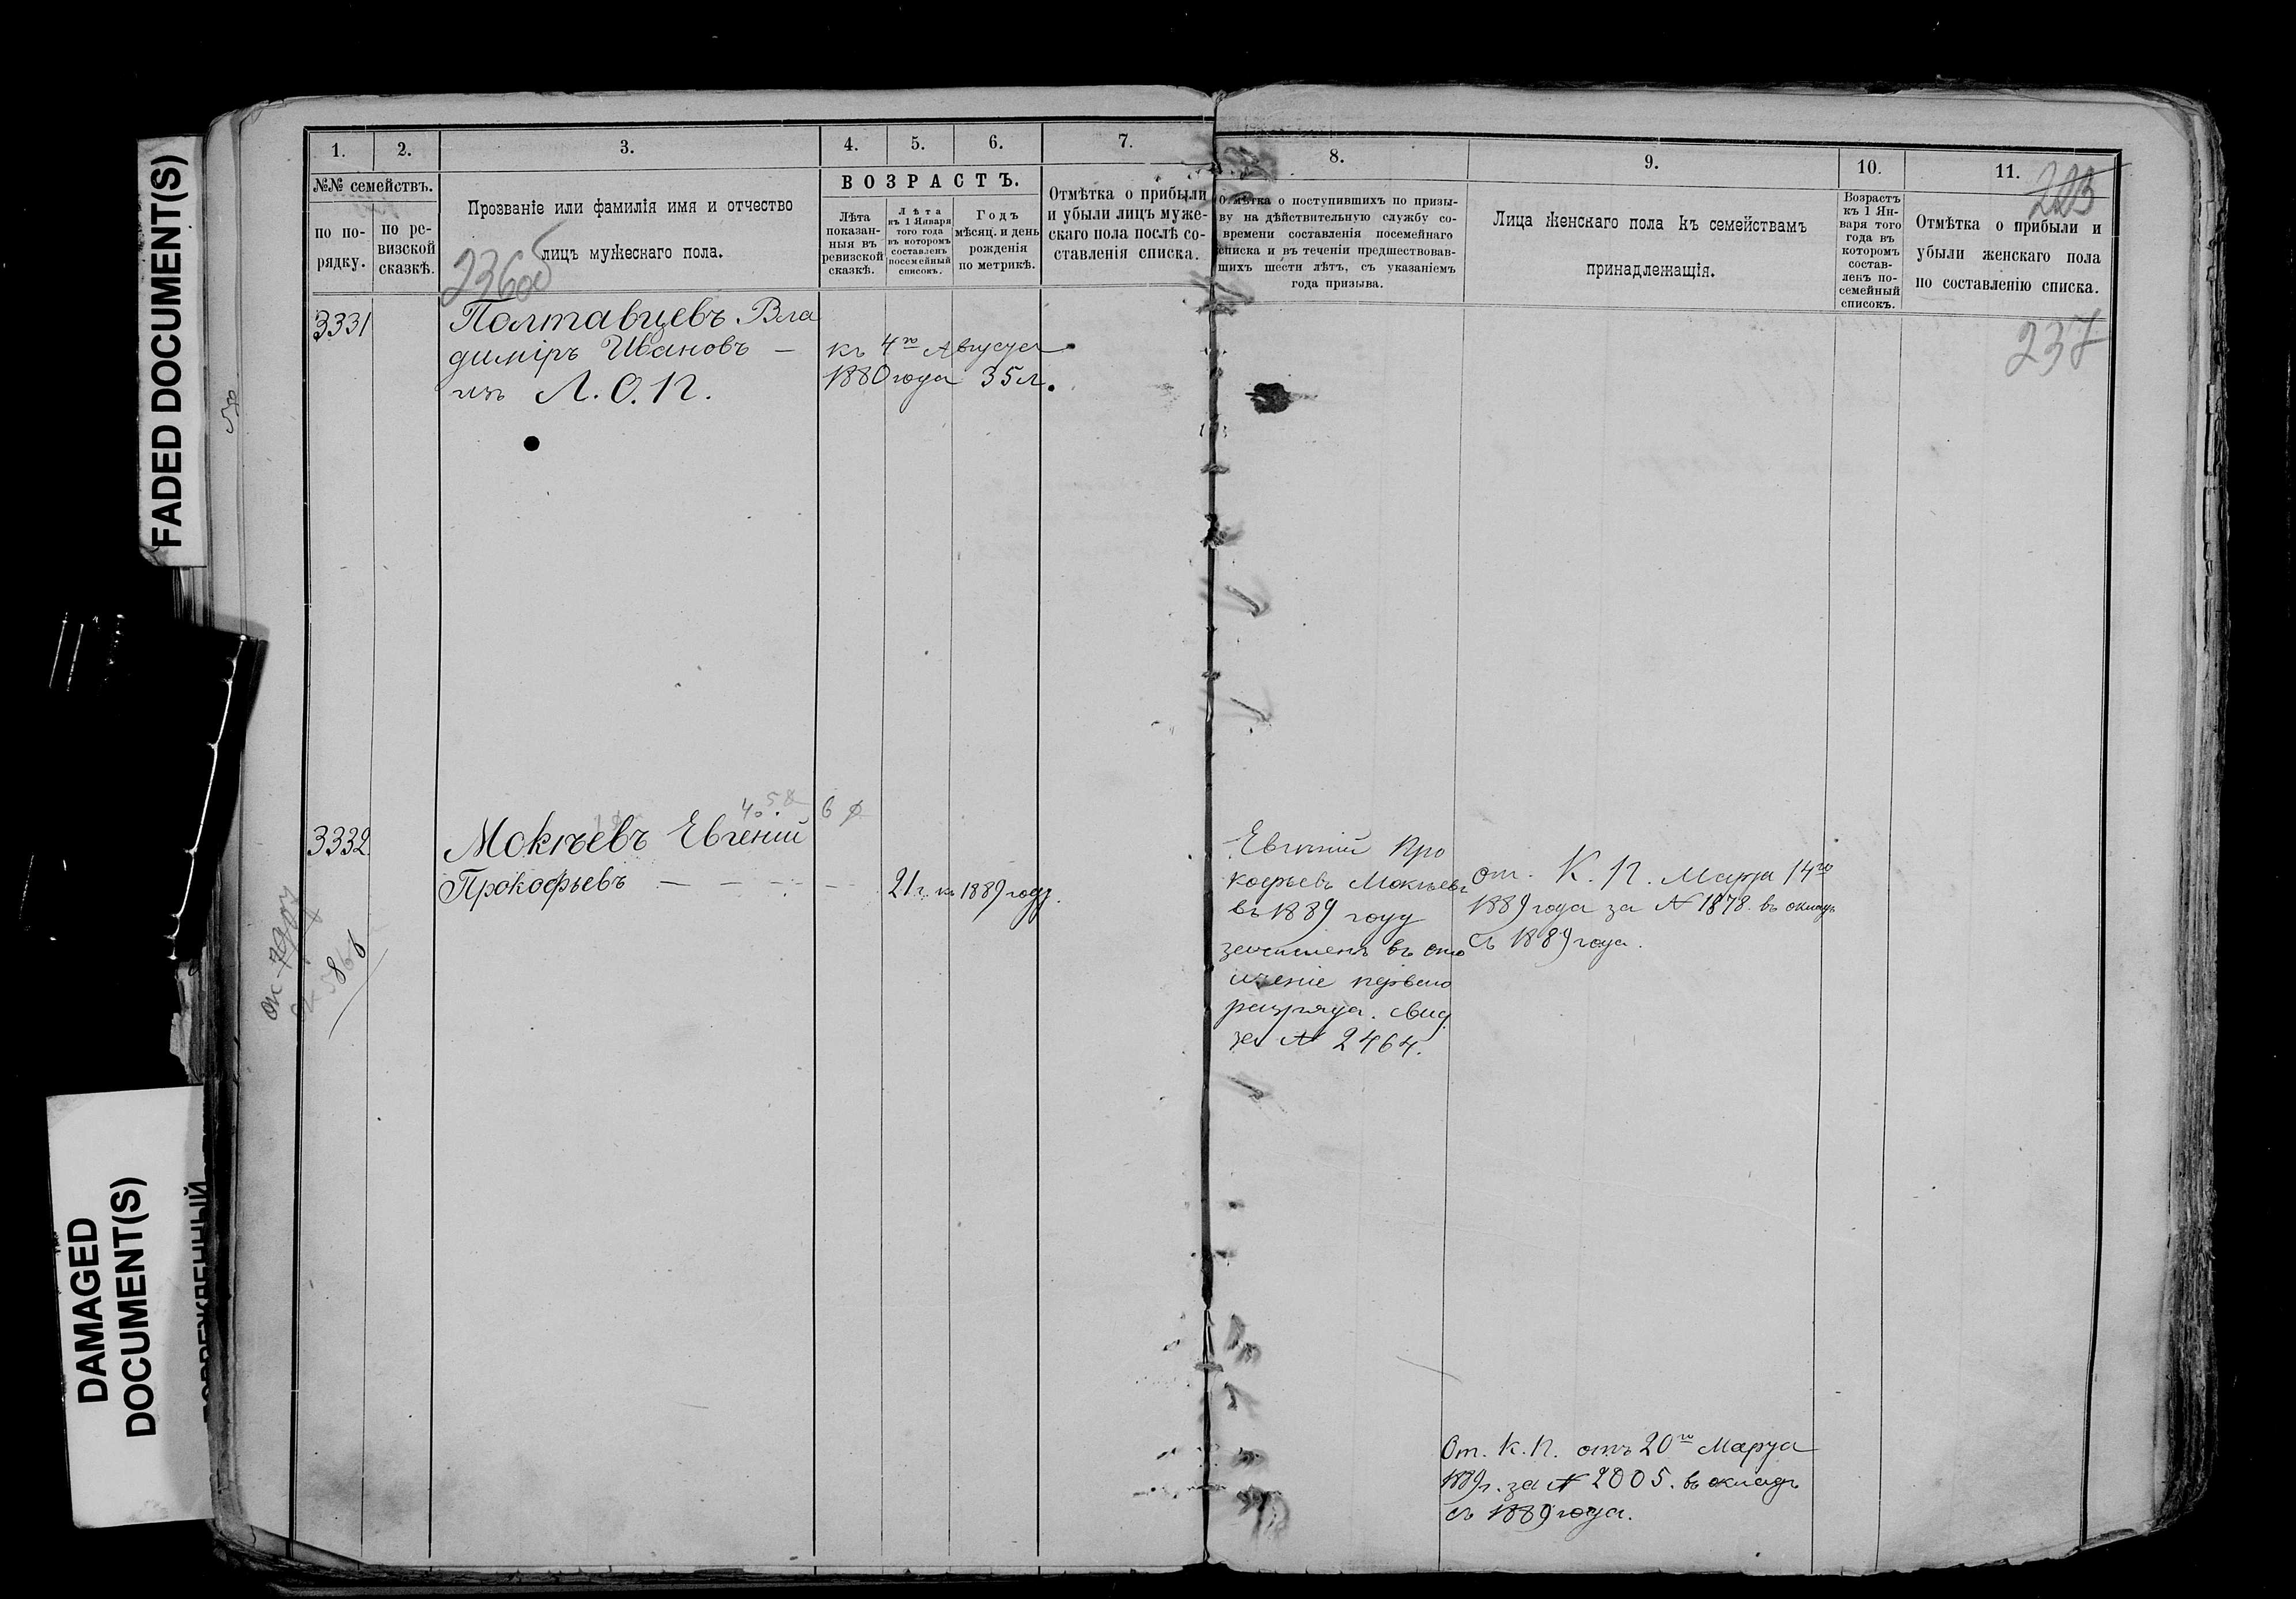 FADED DOCUMENT(S)
DAMAGED
DOCUMENT(S)
1.
2.
3.
4.
5.
6.
7.
№№ семействъ.
по по-
рядку.
по ре-
визской
сказкѣ.
Прозваніе или фамилія имя и отчество
лицъ мужескаго пола.
ВОЗРАСТЪ.
Лѣта
показан-
ныя въ
ревизской
сказкѣ.
Лѣта
къ 1 Января
того года
въ которомъ
составленъ
посемейный
списокъ.
Годъ
мѣсяц. и день
рожденія
по метрикѣ.
Отмѣтка о прибыли
и убыли лицъ муже-
скаго пола послѣ со-
ставленія списка.
3331
Полтавцевъ Вла
диміръ Ивановъ —
изъ Л. О. П.
къ 4го Августа
1880 года 35 л.
3332
Мокѣевъ Евгеній
Прокофьевъ — — — —
21 г. къ 1889 году.
8.
9.
10.
11.
223
Отмѣтка о поступившихъ по призы-
ву на дѣйствительную службу со-
времени составленія посемейнаго
списка и въ теченіи предшествовав-
шихъ шести лѣтъ, съ указаніемъ
года призыва.
Лица женскаго пола къ семействамъ
принадлежащія.
Возрастъ
къ 1 Ян-
варя того
года въ
которомъ
состав-
ленъ по-
семейный
списокъ.
Отмѣтка о прибыли и
убыли женскаго пола
по составленію списка.
237
Евгеній Про
кофьевъ Мокѣевъ
въ 1889 году
зачисленъ въ опо
лченіе перваго
разряда. Свид.
за № 2464.
От. К. П. Марта 14го
1889 года за № 1878. въ окладъ
съ 1889 года.
От. К. П. отъ 20го Марта
1889 г. за № 2005. въ окладъ
съ 1889 года.